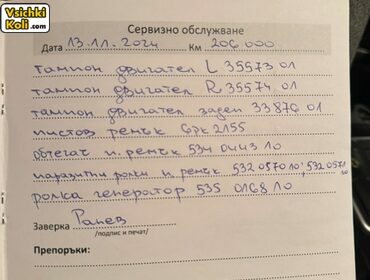 Vsichki
Koli.com
Сервизно обслужване
Дата 13.11.2024 Км 206 000
тампон двигател L 35573 01
тампон двигател R 35574 01
тампон двигател заден 33876 01
пистов ремък 6pk 2155
обтегач и ремък 534 0443 10
паразитни ролки и ремък 532 0570 10; 532 0571 10
ролка генератор 535 0168 10
Заверка Ранев
/подпис и печат/
Препоръки: